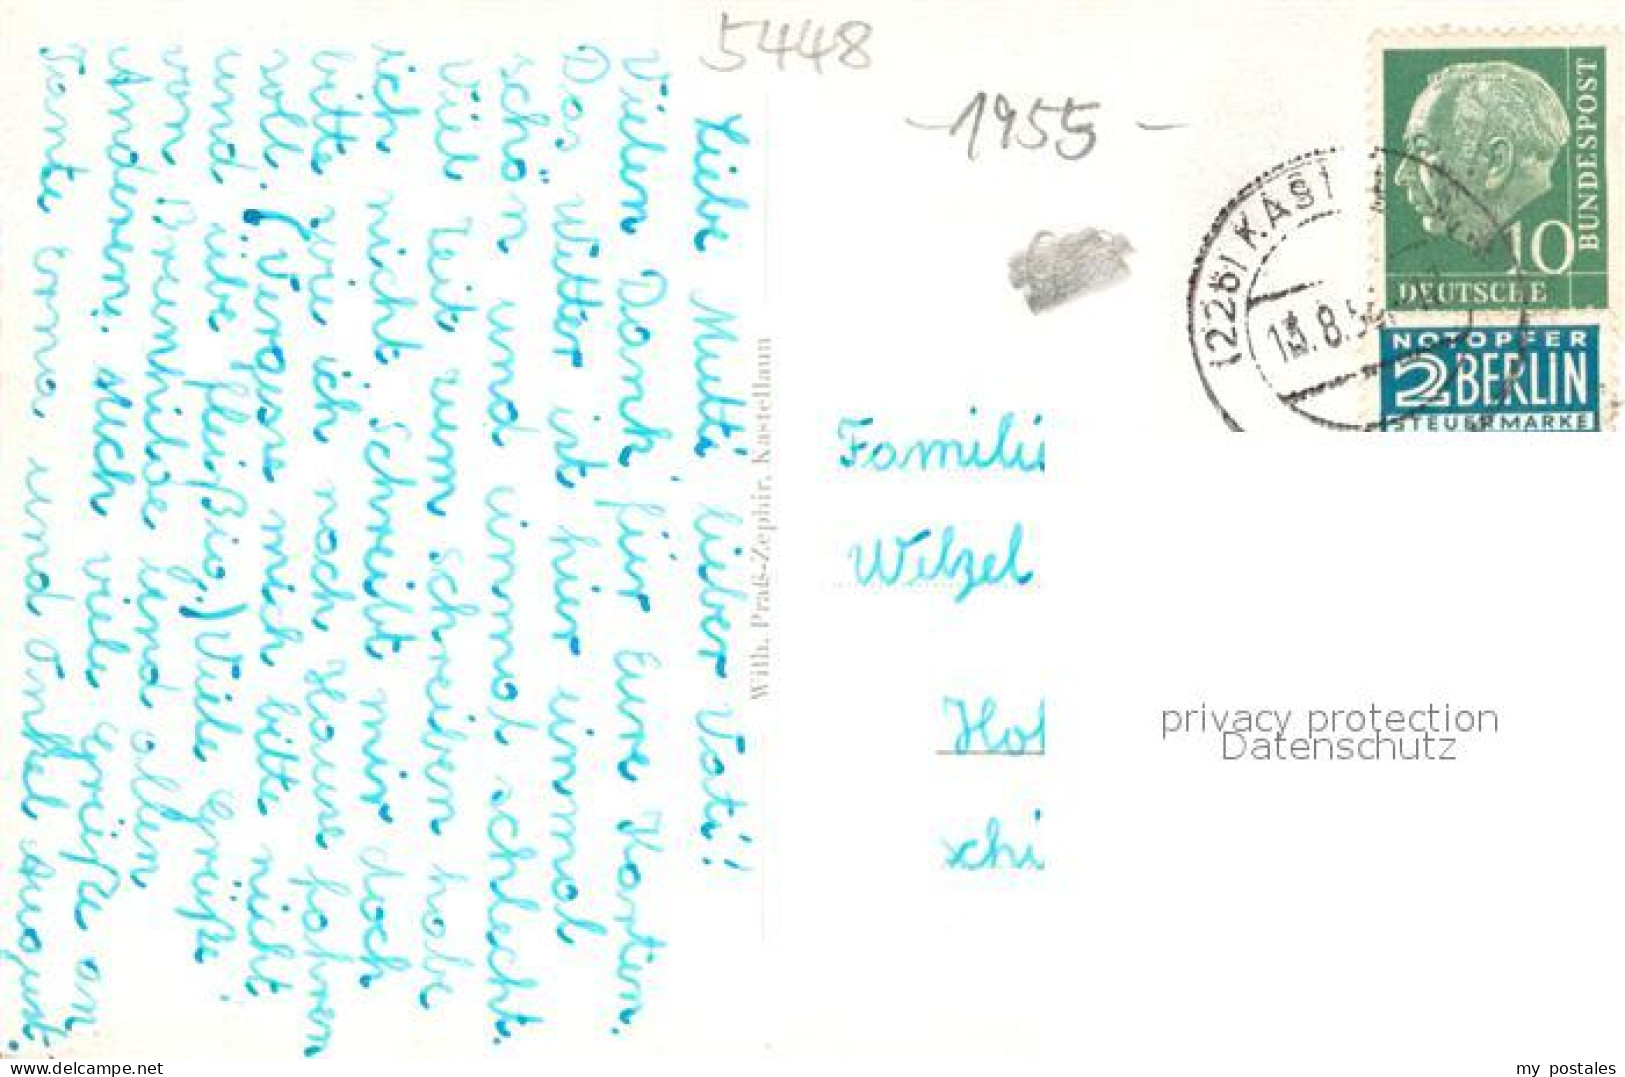 5448
-1955-
Liebe Mutti, lieber Vati!
Vielen Dank für Eure Karten.
Das Wetter ist hier einmal
schön und einmal schlecht.
Viel Zeit zum schreiben habe
ich nicht. Schreibt mir doch
bitte wie ich nach Hause fahren
soll. (Vergesse mich bitte nicht
und übe fleißig.) Viele Grüße
von Brunhilde und allen
Anderen. Auch viele Grüße an
Tante Erna und Onkel August.
Wilh. Praß-Zephir, Kastellaun
BUNDESPOST
10
DEUTSCHE
NOTOPFER
2 BERLIN
STEUERMARKE
(22b) KAST
13.8.5
Famili
Welzel
Hol
schi
privacy protection
Datenschutz
www.delcampe.net
my_postales